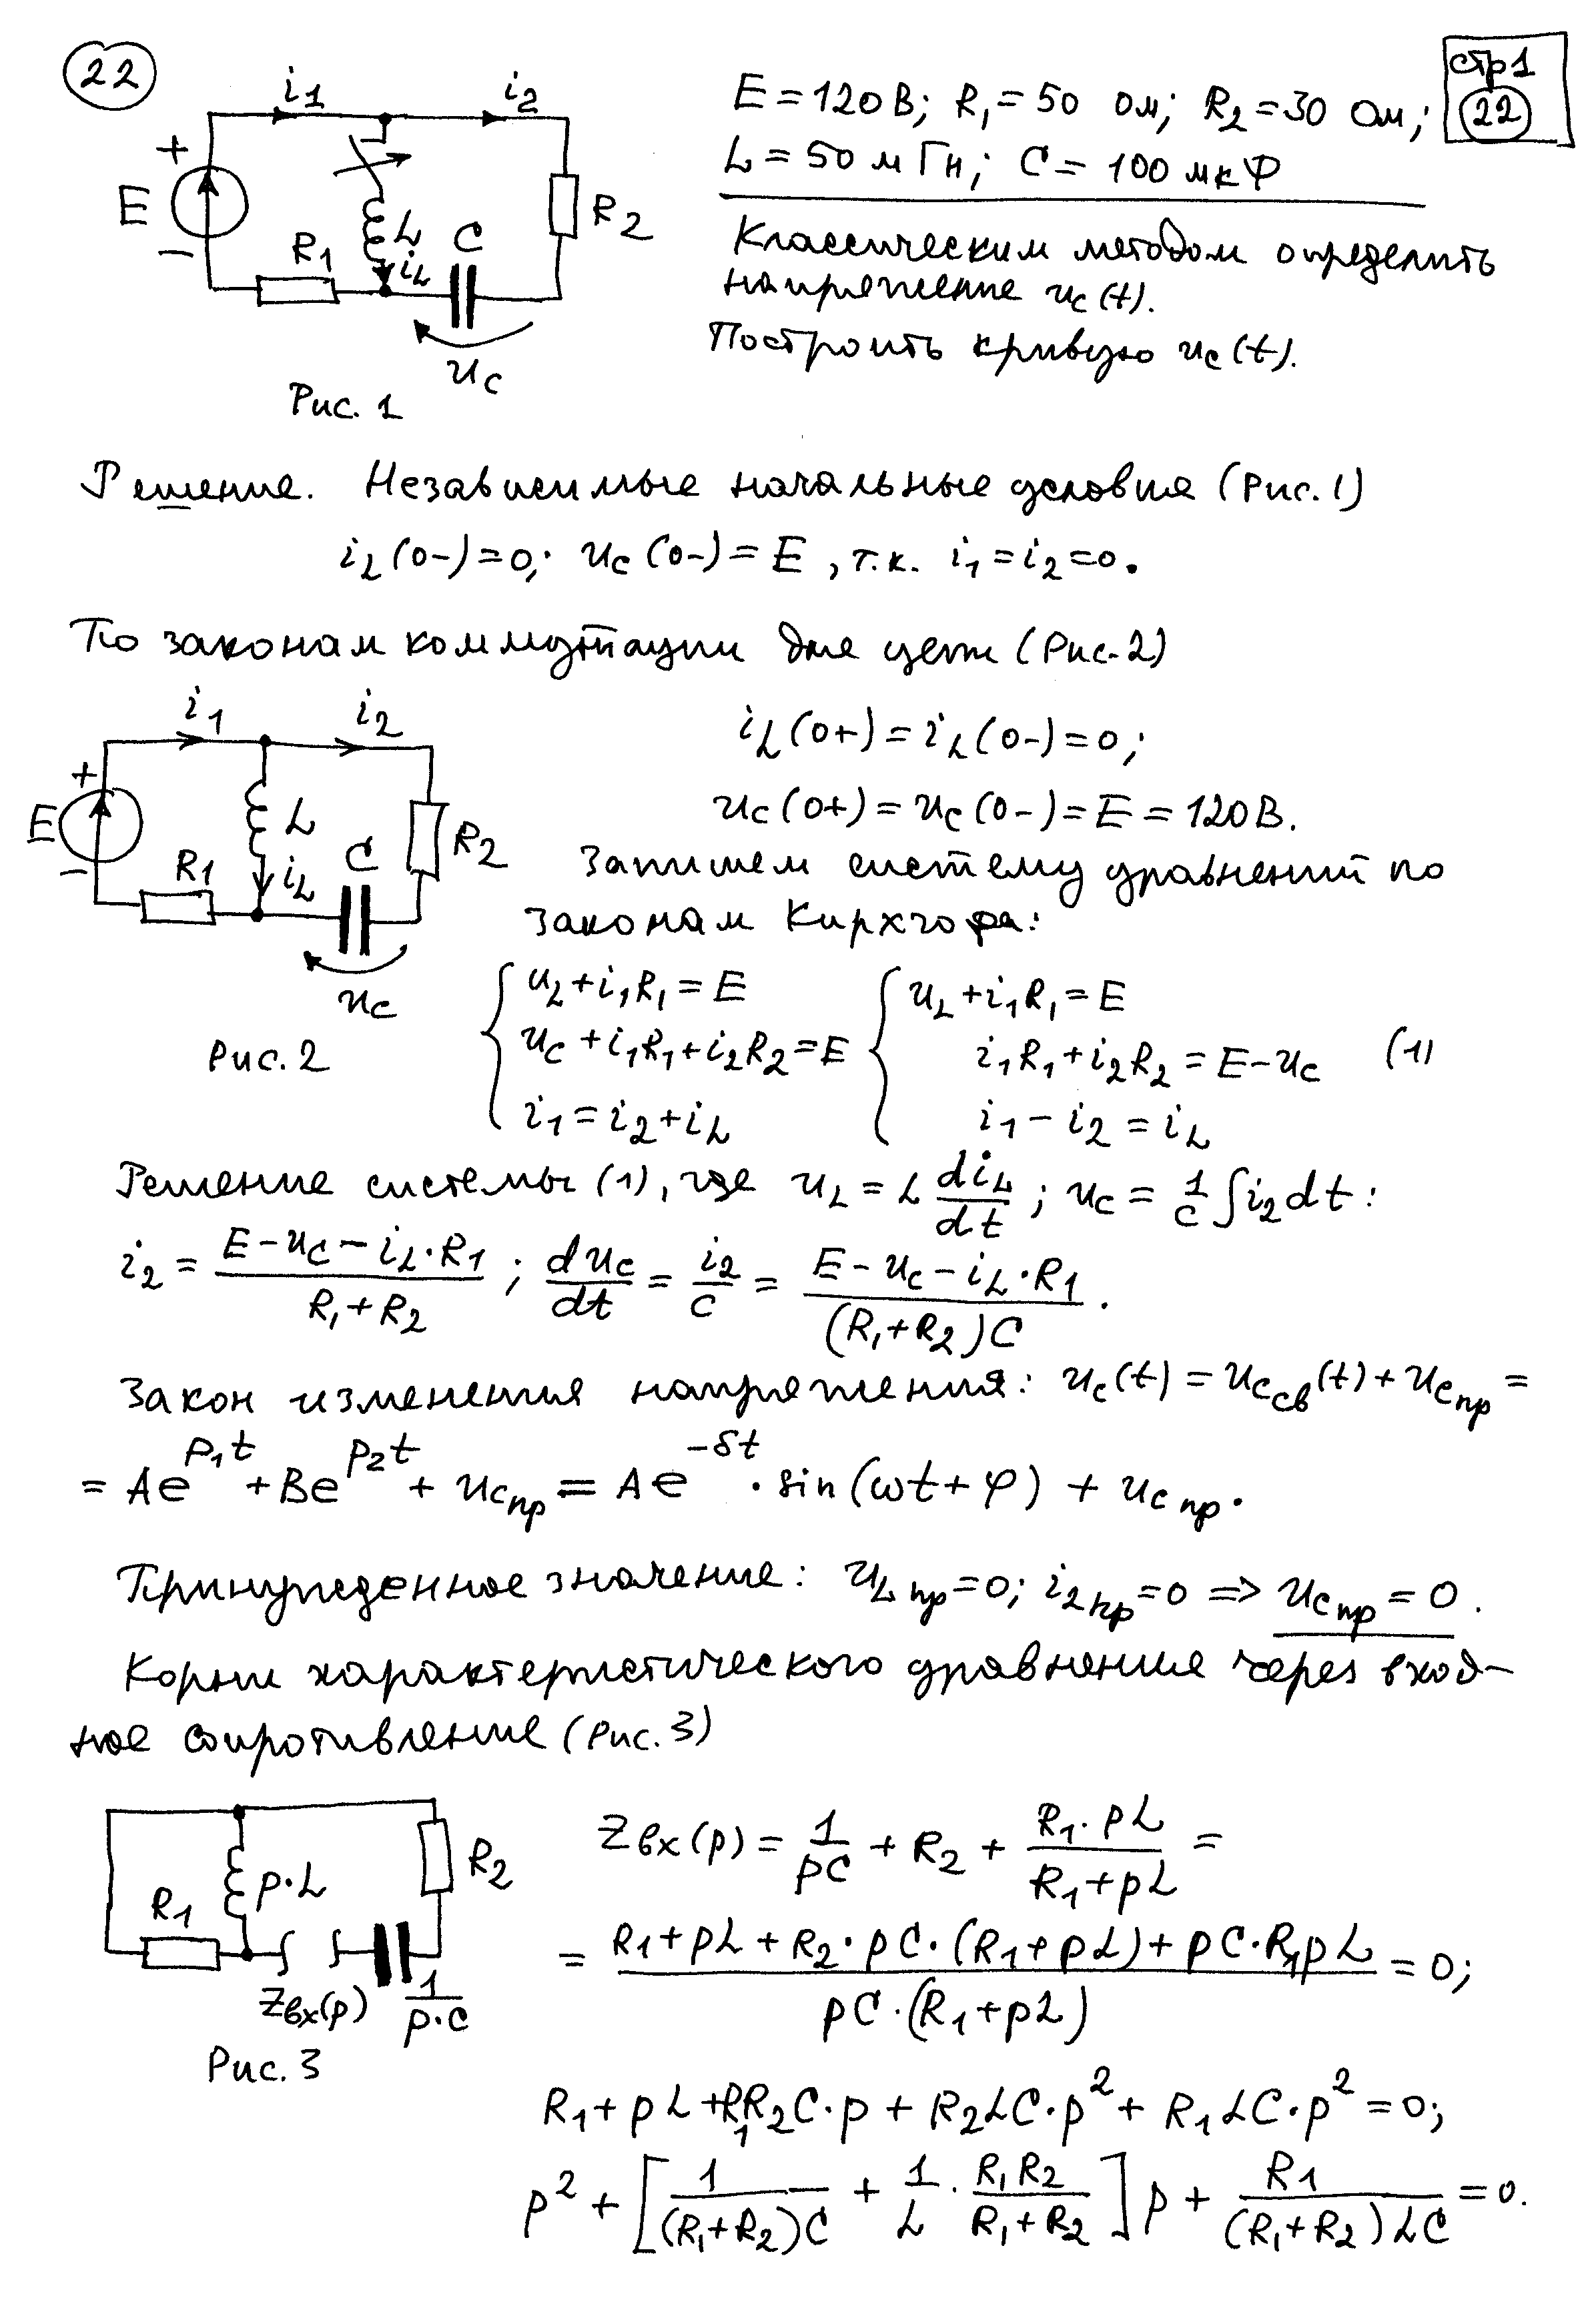 22
стр 1
22
i1
i2
E
+
−
R1
L
iL
C
R2
uC
Рис. 1
E = 120 В; R1 = 50 Ом; R2 = 30 Ом;
L = 50 мГн; C = 100 мкФ
Классическим методом определить
напряжение uC(t).
Построить кривую uC(t).
Решение. Независимые начальные условия (Рис. 1)
iL(0−) = 0; uC(0−) = E, т.к. i1 = i2 = 0.
По законам коммутации для цепи (Рис. 2)
i1
i2
+
E
−
L
R1
iL
C
R2
uC
Рис. 2
iL(0+) = iL(0−) = 0;
uC(0+) = uC(0−) = E = 120 В.
Запишем систему уравнений по
законам Кирхгофа:
uL + i1R1 = E
uC + i1R1 + i2R2 = E
i1 = i2 + iL
uL + i1R1 = E
i1R1 + i2R2 = E − uC (1)
i1 − i2 = iL
Решение системы (1), где uL = L diL/dt; uC = 1/C ∫i2dt:
i2 = (E − uC − iL·R1)/(R1 + R2); duC/dt = i2/C = (E − uC − iL·R1)/((R1 + R2)C).
Закон изменения напряжения: uC(t) = uCсв(t) + uCпр =
= Ae^(p1t) + Be^(p2t) + uCпр = Ae^(−δt) · sin(ωt + φ) + uCпр.
Принужденное значение: uLпр = 0; i2пр = 0 => uCпр = 0.
Корни характеристического уравнения через вход-
ное сопротивление (Рис. 3)
p·L
R1
R2
Zвх(p)
1/(p·C)
Рис. 3
Zвх(p) = 1/(pC) + R2 + (R1·pL)/(R1 + pL) =
= (R1 + pL + R2·pC·(R1 + pL) + pC·R1pL)/(pC·(R1 + pL)) = 0;
R1 + pL + R1R2C·p + R2LC·p² + R1LC·p² = 0;
p² + [1/((R1 + R2)C) + 1/L · R1R2/(R1 + R2)] p + R1/((R1 + R2)LC) = 0.